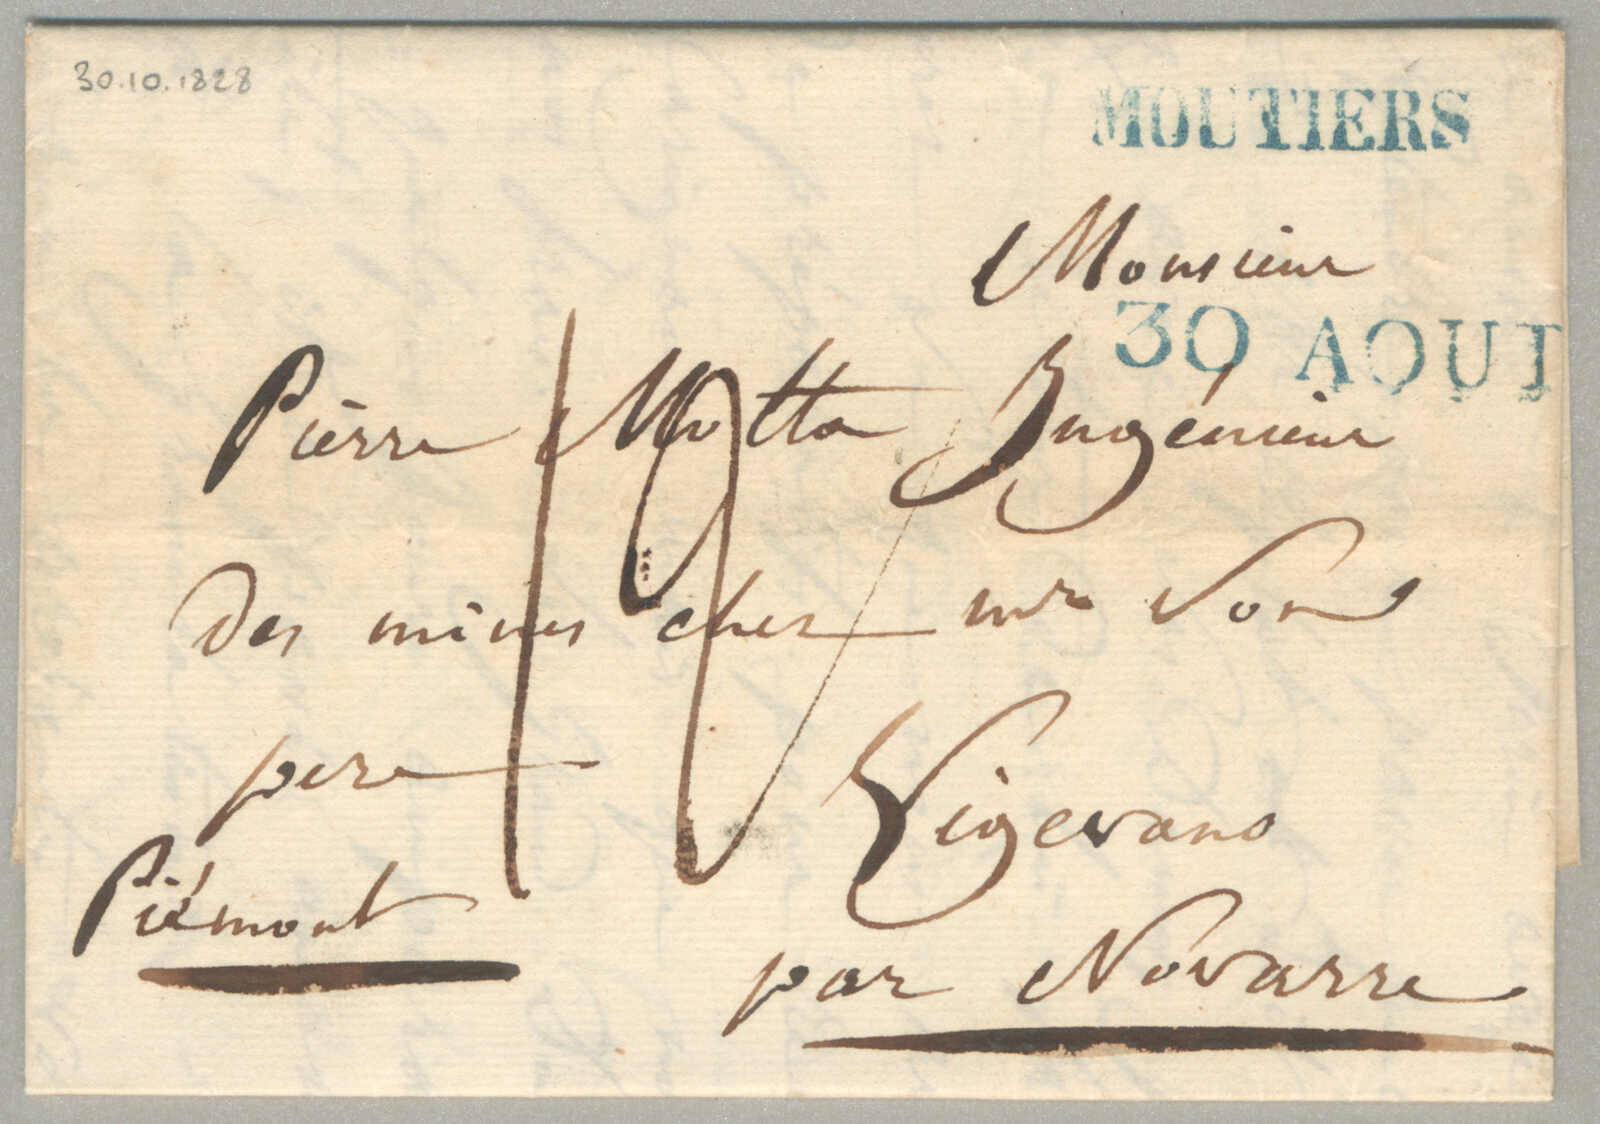 30.10.1828
MOUTIERS
Monsieur
30 AOUT
Pierre Motta Ingénieur
des mines chez mr Son
pere
Vigevano
Piémont
par Novarre